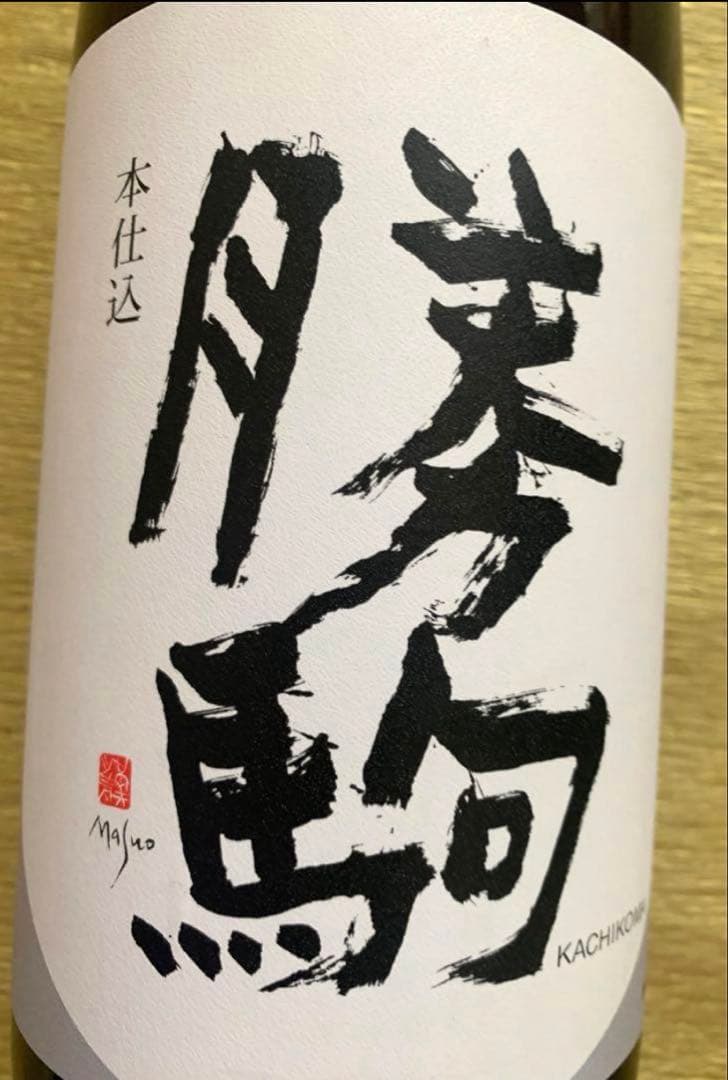 勝駒
本仕込
Masuo
KACHIKOMA